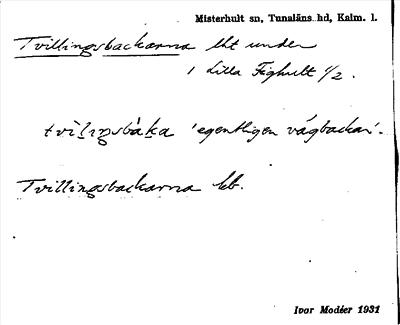 Misterhult sn, Tunaläns hd, Kalm. l.
Tvillingsbackarna lht under
1 Lilla Fighult 1/2.
tvìlıŋsbàka 'egentligen vägbackar'.
Tvillingsbackarna bb.
Ivar Modéer 1931